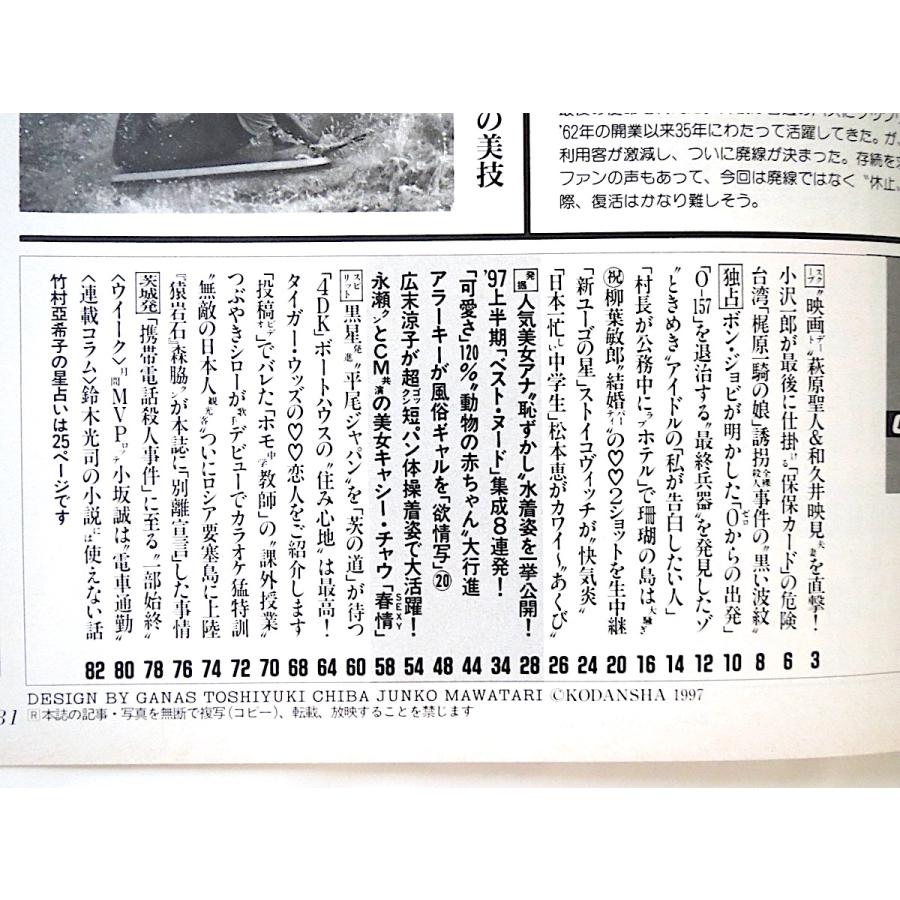 の美技
'62年の開業以来35年にわたって活躍してきた。が、
利用客が激減し、ついに廃線が決まった。存続を求
ファンの声もあって、今回は廃線ではなく〝休止〟
際、復活はかなり難しそう。
スクープ 〝映画デート〟萩原聖人&和久井映見夫妻を直撃! 3
小沢一郎が最後に仕掛ける「保保カード」の危険 6
台湾「梶原一騎の娘」誘拐全裸殺人事件の〝黒い波紋〟 8
独占 ボン・ジョビが明かした「0からの出発」 10
「O-157」を退治する〝最終兵器〟を発見したゾ 12
〝ときめき〟アイドルの「私が告白したい人」 14
「村長が公務中にラブホテル」で珊瑚の島は大騒ぎ 16
祝 柳葉敏郎〝結婚パーティ〟の♡♡2ショットを生中継 20
「新ユーゴの星」ストイコヴィッチが〝快気炎〟 24
「日本一忙しい中学生」松本恵がカワイ〜〝あくび〟 26
発掘 人気美女アナ〝恥ずかし〟水着姿を一挙公開! 28
'97上半期「ベスト・ヌード」集成8連発! 34
「可愛さ」120%〝動物の赤ちゃん〟大行進 44
アラーキーが風俗ギャルを「欲情写」⑳ 48
広末涼子が超ゴクツ短パン体操着姿で大活躍! 54
永瀬クンとCM共演の美女キャシー・チャウ「春情SEXY」 58
スピリット 黒星発進〝平尾ジャパン〟を「茨の道」が待つ 60
「4DK」ボートハウスの〝住み心地〟は最高! 64
タイガー・ウッズの♡♡恋人をご紹介します 68
「投稿ビデオ」でバレた「ホモ中学教師」の〝課外授業〟 70
つぶやきシローが〝歌手〟デビューでカラオケ猛特訓 72
〝無敵の日本人観光客〟ついにロシア要塞島に上陸 74
『猿岩石』森脇クンが本誌に「別離宣言」した事情 76
茨城発「携帯電話殺人事件」に至る〝一部始終〟 78
〈ウイーク〉月間MVPロッテ小坂誠は〝電車通勤〟 80
〈連載コラム〉鈴木光司の小説には使えない話 82
竹村亞希子の星占いは25ページです
DESIGN BY GANAS TOSHIYUKI CHIBA JUNKO MAWATARI ©KODANSHA 1997
R本誌の記事・写真を無断で複写(コピー)、転載、放映することを禁じます